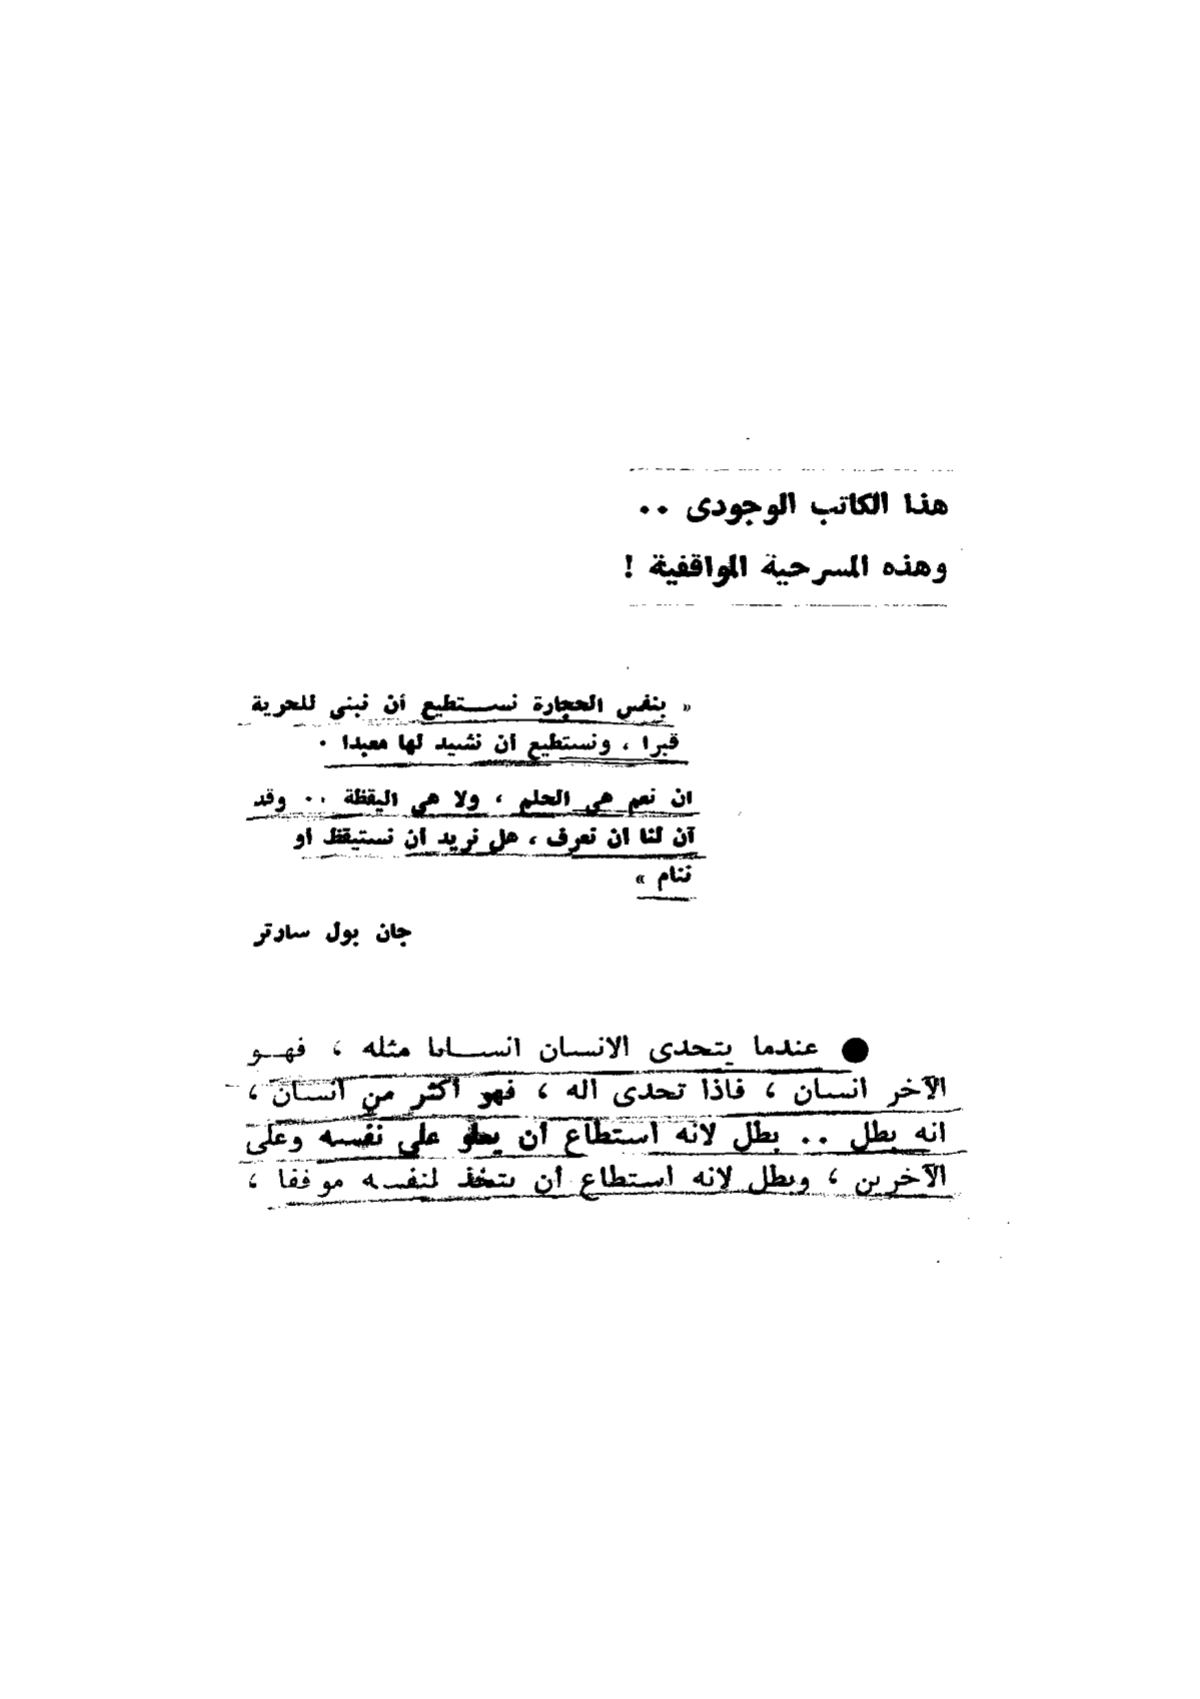 هذا الكاتب الوجودى ..
وهذه المسرحية المواقفية !
« بنفس الحجارة نستطيع أن نبنى للحرية
قبرا ، ونستطيع ان نشيد لها معبدا .
ان نعم هى الحلم ، ولا هى اليقظة .. وقد
آن لنا ان نعرف ، هل نريد ان نستيقظ او
ننام »
جان بول سارتر
● عندما يتحدى الانسان انسانا مثله ، فهو
الآخر انسان ، فاذا تحدى اله ، فهو أكثر من انسان ،
انه بطل .. بطل لانه استطاع أن يعلو على نفسه وعلى
الآخرين ، وبطل لانه استطاع أن يتخذ لنفسه موقفا ،